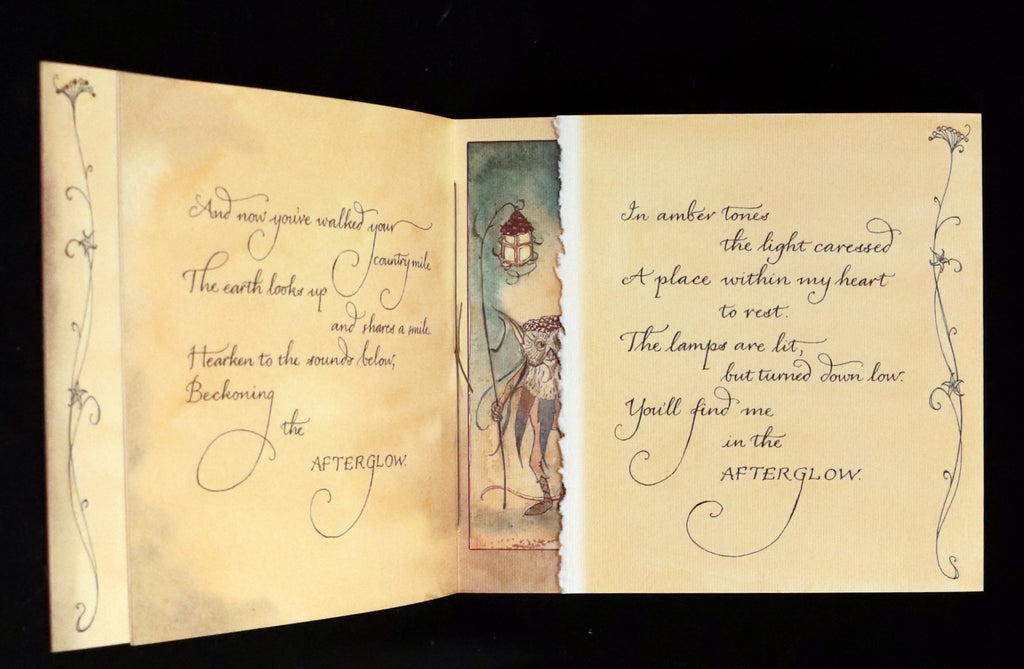 And now you've walked your
country mile
The earth looks up
and shares a smile.
Hearken to the sounds below,
Beckoning
the
AFTERGLOW.
In amber tones
the light caressed
A place within my heart
to rest.
The lamps are lit,
but turned down low.
You'll find me
in the
AFTERGLOW.